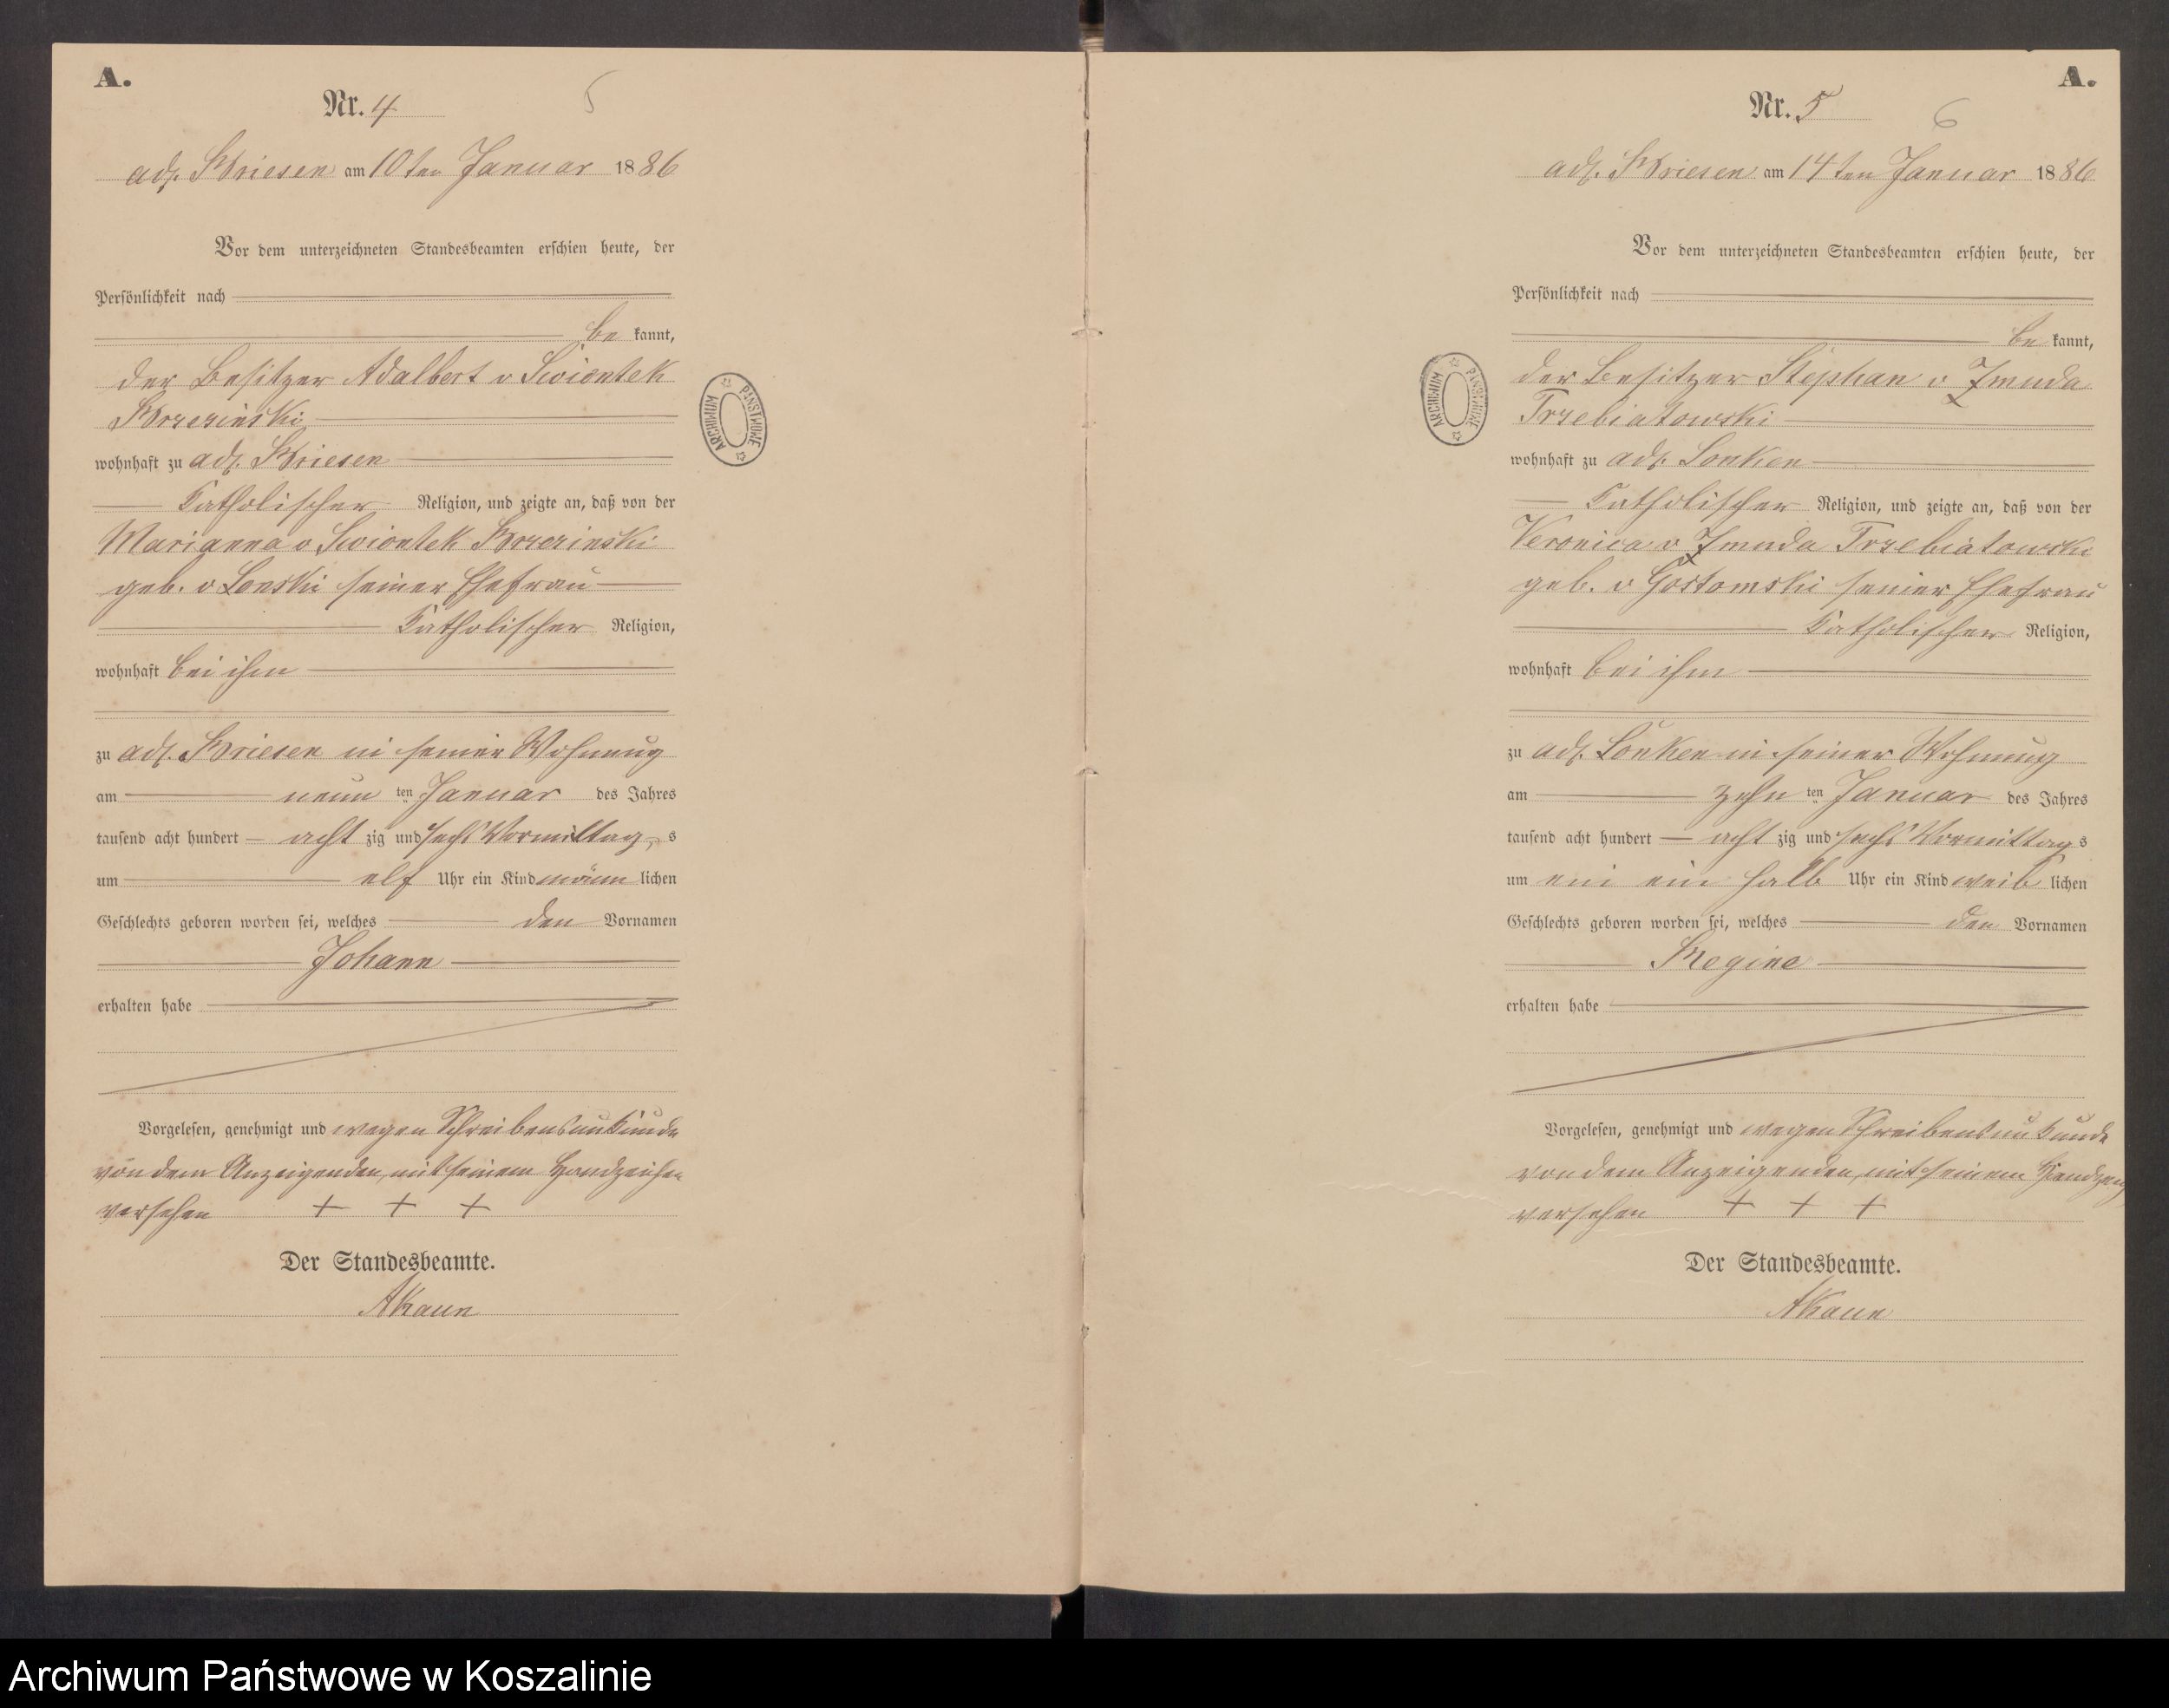 A.
Nr. 4
5
adl. Briesen am 10ten Januar 1886
Vor dem unterzeichneten Standesbeamten erschien heute, der
Persönlichkeit nach
be kannt,
der Besitzer Adalbert v Swiontek
Brzezinski
wohnhaft zu adl. Briesen
Katholischer Religion, und zeigte an, daß von der
Marianna v Swiontek Brzezinski
geb. v Lonski seiner Ehefrau
Katholischer Religion,
wohnhaft bei ihm
zu adl. Briesen in seiner Wohnung
am neun ten Januar des Jahres
tausend acht hundert acht zig und sechs Vormittag s
um elf Uhr ein Kind männ lichen
Geschlechts geboren worden sei, welches den Vornamen
Johann
erhalten habe
Vorgelesen, genehmigt und wegen Schreibensunkunde
von dem Anzeigenden, mit seinem Handzeichen
versehen + + +
Der Standesbeamte.
AKaun
ARCHIWUM PAŃSTWOWE
A.
Nr. 5
6
adl. Briesen am 14ten Januar 1886
Vor dem unterzeichneten Standesbeamten erschien heute, der
Persönlichkeit nach
be kannt,
der Besitzer Stephan v Zmuda
Trzebiatowski
wohnhaft zu adl. Lonken
Katholischer Religion, und zeigte an, daß von der
Veronica v Zmuda Trzebiatowski
geb. v Gostomski seiner Ehefrau
Katholischer Religion,
wohnhaft bei ihm
zu adl. Lonken in seiner Wohnung
am zehn ten Januar des Jahres
tausend acht hundert acht zig und sechs Vormittag s
um ein ein halb Uhr ein Kind weib lichen
Geschlechts geboren worden sei, welches den Vornamen
Regine
erhalten habe
Vorgelesen, genehmigt und wegen Schreibensunkunde
von dem Anzeigenden, mit seinem
versehen + + +
Der Standesbeamte.
AKaun
ARCHIWUM PAŃSTWOWE
Archiwum Państwowe w Koszalinie